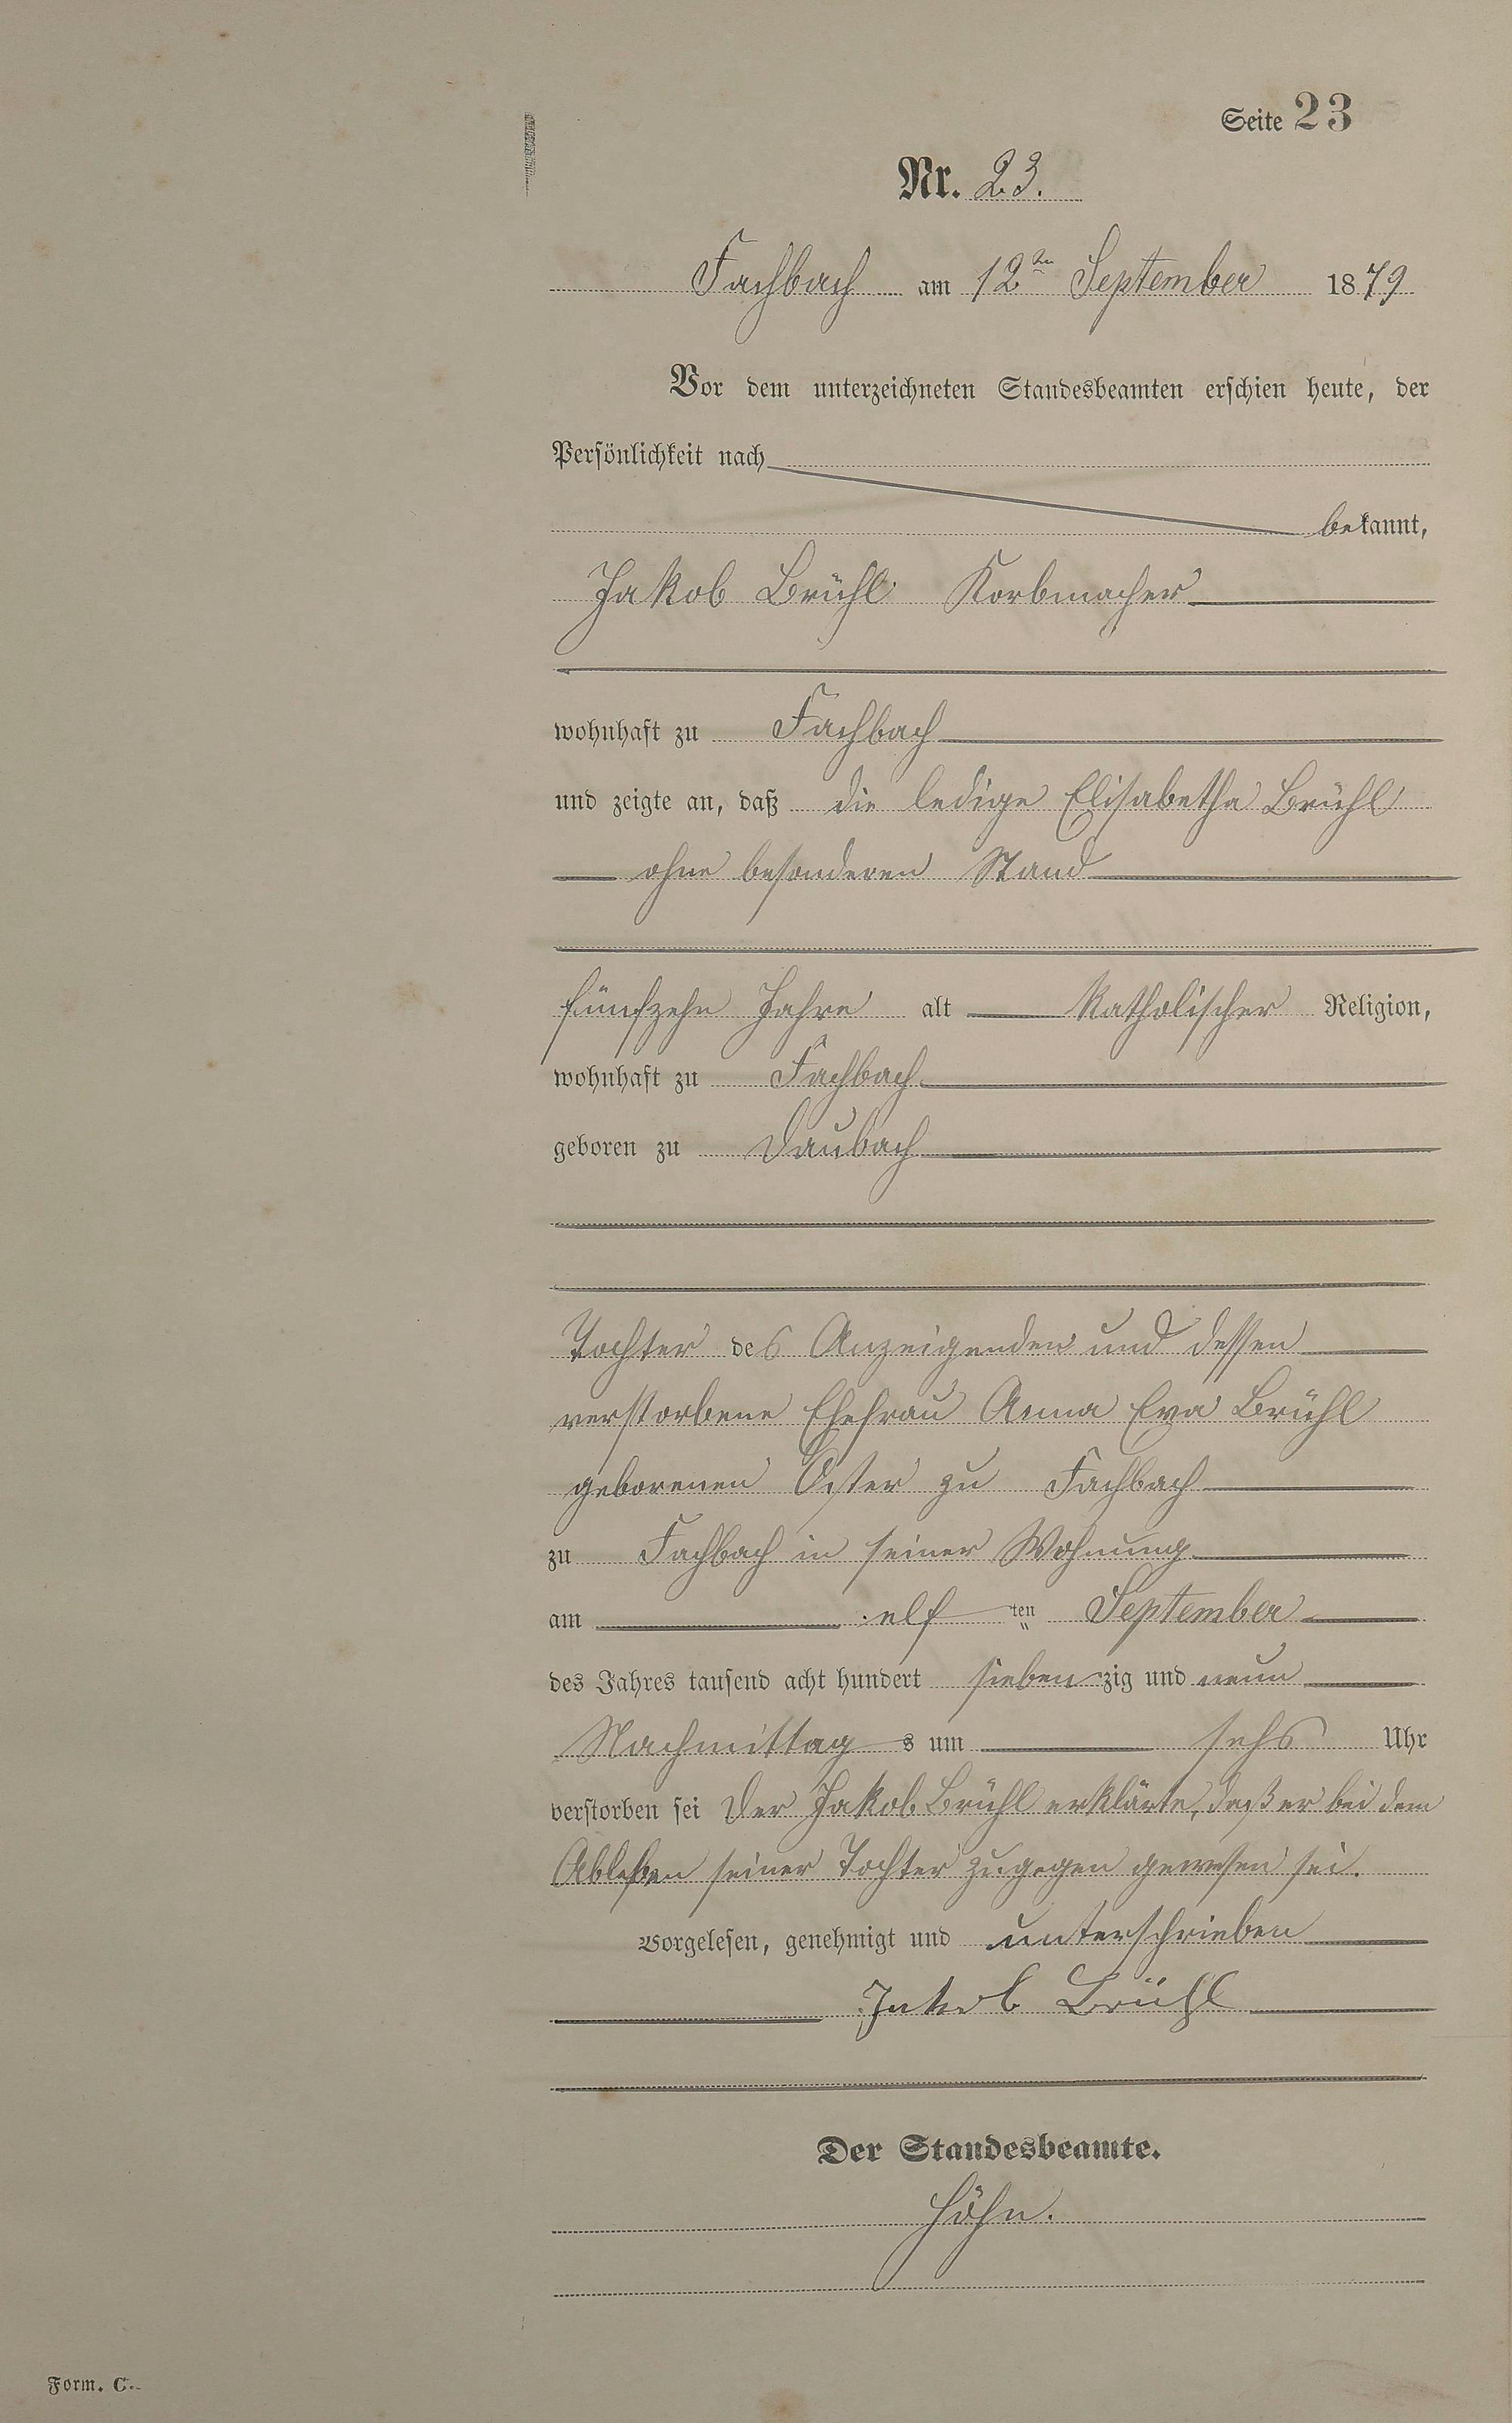 Seite 23
Nr. 23.
Fachbach am 12ten September 1879
Vor dem unterzeichneten Standesbeamten erschien heute, der
Persönlichkeit nach
bekannt,
Jakob Brühl Korbmacher
wohnhaft zu Fachbach
und zeigte an, daß die ledige Elisabetha Brühl
ohne besonderen Stand
fünfzehn Jahre alt katholischer Religion,
wohnhaft zu Fachbach
geboren zu Daubach
Tochter des Anzeigenden und dessen
verstorbene Ehefrau Anna Eva Brühl
geborenen Oster zu Fachbach
zu Fachbach in seiner Wohnung
am elf ten September
des Jahres tausend acht hundert siebenzig und neun
Nachmittags um sechs Uhr
verstorben sei Der Jakob Brühl erklärte, daß er bei dem
Ableben seiner Tochter zugegen gewesen sei.
Vorgelesen, genehmigt und unterschrieben
Jakob Brühl
Der Standesbeamte.
Höhn.
Form. C.